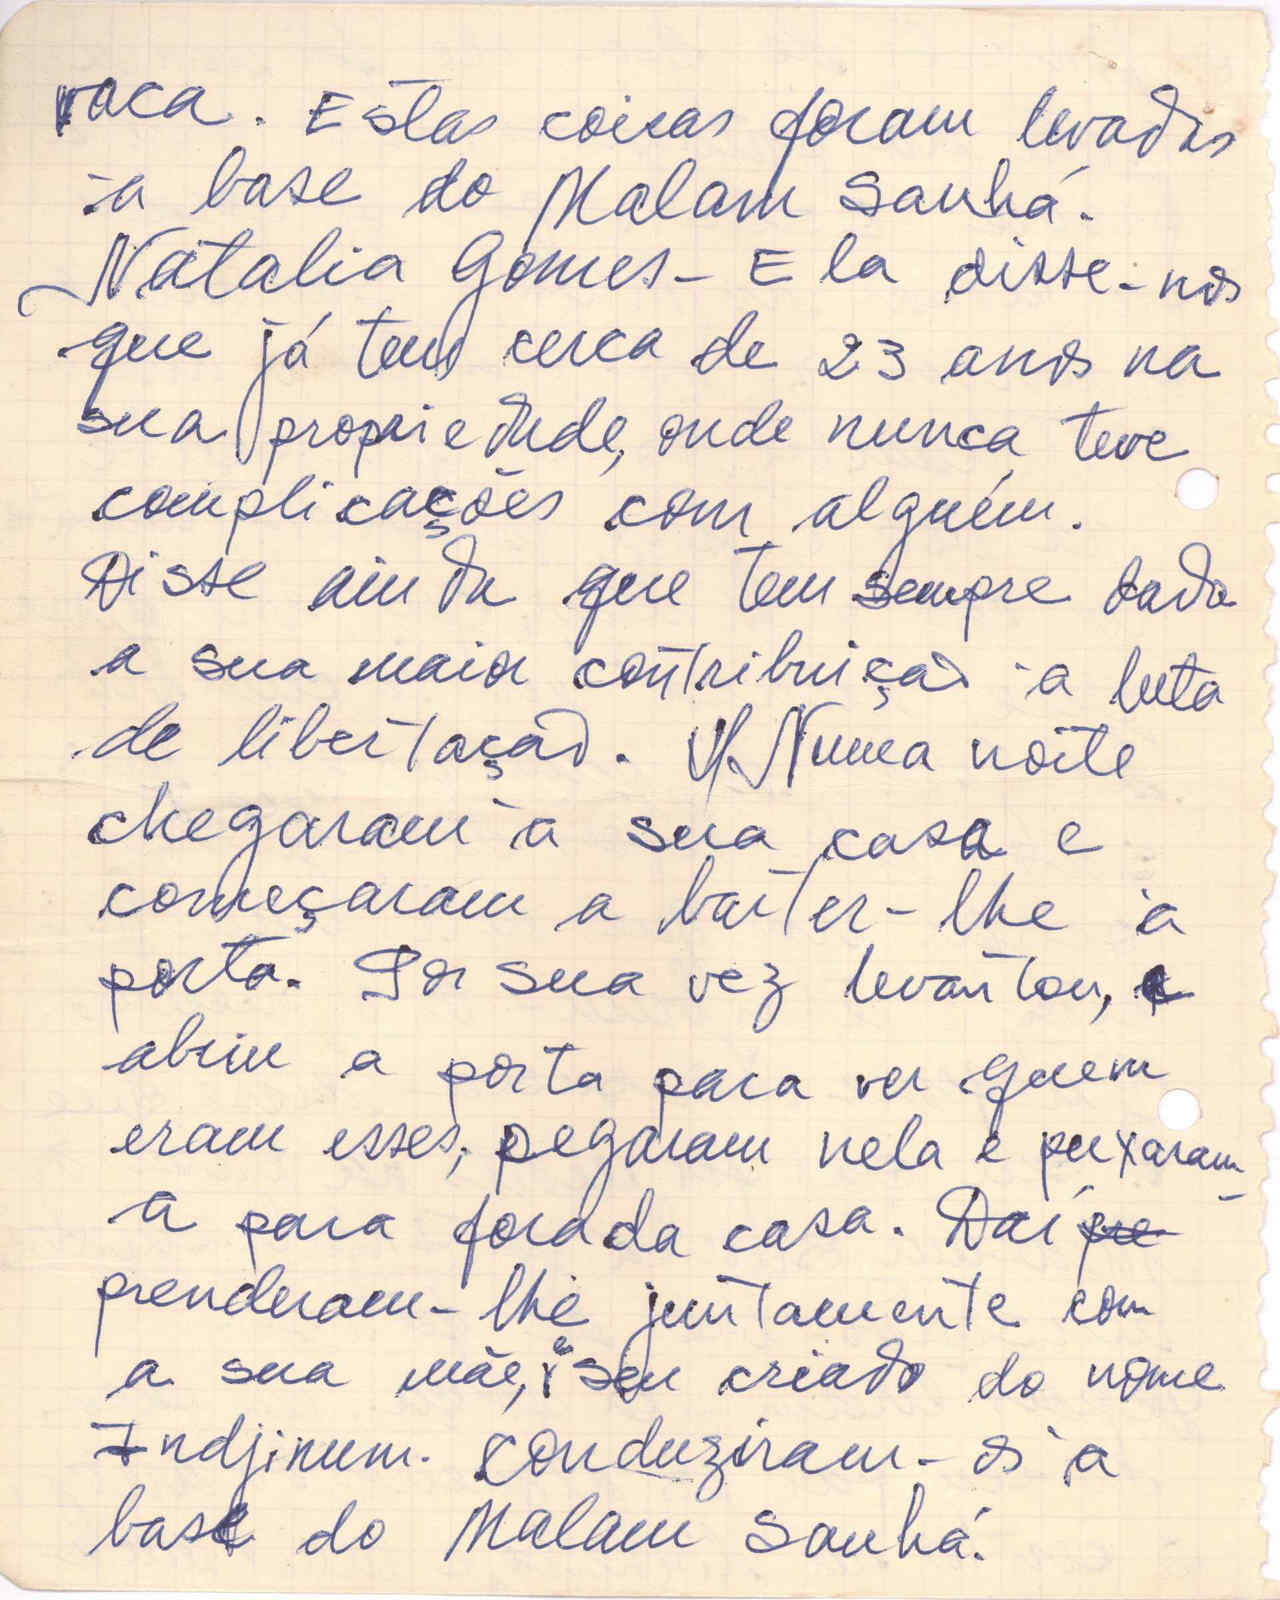 vaca. Estas coisas foram levadas
à base do Malam Sanhá.
Natalia Gomes - Ela disse-nos
que já tem cerca de 23 anos na
sua propriedade, onde nunca teve
complicações com alguém.
Disse ainda que tem sempre dado
a sua maior contribuição à luta
de libertação. Numa noite
chegaram à sua casa e
começaram a bater-lhe à
porta. Por sua vez levantou, e
abriu a porta para ver quem
eram esses; pegaram nela e puxaram-
a para fora da casa. Daí pre
prenderam-lhe juntamente com
a sua mãe, e seu criado do nome
Indjinum. Conduziram-os à
base do Malam Sanhá.